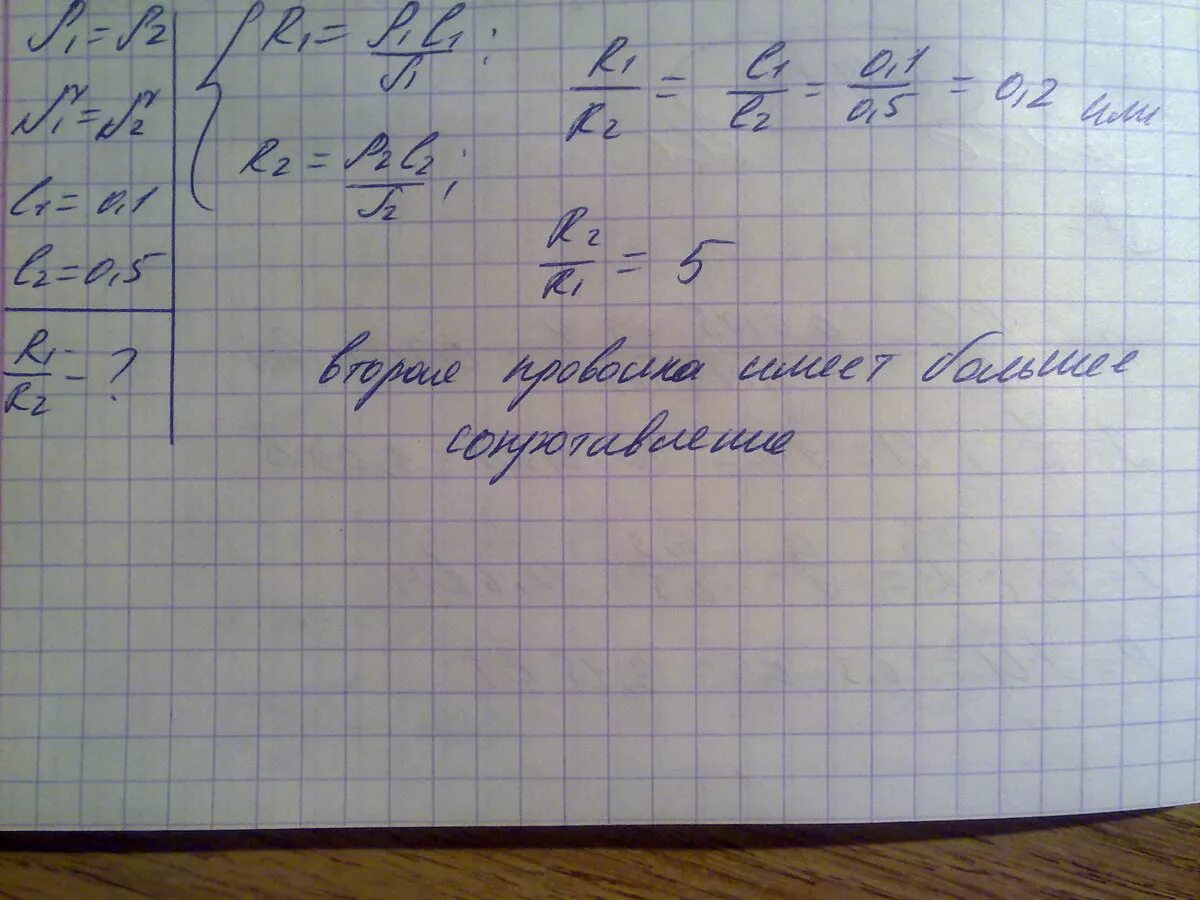 ρ₁ = ρ₂
S₁ = S₂
l₁ = 0,1
l₂ = 0,5
R₁/R₂ - ?
R₁ = ρ₁l₁/S₁ ;
R₂ = ρ₂l₂/S₂ ;
R₁/R₂ = l₁/l₂ = 0,1/0,5 = 0,2 или
R₂/R₁ = 5
вторая проволка имеет большее
сопротивление